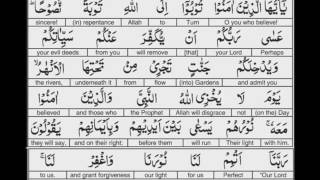 يَٰٓأَيُّهَا ٱلَّذِينَ ءَامَنُوا۟ تُوبُوٓا۟ إِلَى ٱللَّهِ تَوْبَةً
sincere! (in) repentance Allah to Turn O you who believe!
عَسَىٰ رَبُّكُمْ أَن يُكَفِّرَ عَنكُمْ سَيِّـَٔاتِكُمْ
your evil deeds. from you will remove [that] your Lord Perhaps
وَيُدْخِلَكُمْ جَنَّٰتٍ تَجْرِى مِن تَحْتِهَا ٱلْأَنْهَٰرُ
the rivers, underneath it from flow (into) Gardens and admit you
يَوْمَ لَا يُخْزِى ٱللَّهُ ٱلنَّبِىَّ وَٱلَّذِينَ ءَامَنُوا۟
believed and those who the Prophet Allah will disgrace not (on the) Day
مَعَهُۥ نُورُهُمْ يَسْعَىٰ بَيْنَ أَيْدِيهِمْ وَبِأَيْمَٰنِهِمْ يَقُولُونَ
they will say, and on their right; before them will run Their light with him.
رَبَّنَآ أَتْمِمْ لَنَا نُورَنَا وَٱغْفِرْ لَنَآ
to us. and grant forgiveness our light for us Perfect "Our Lord